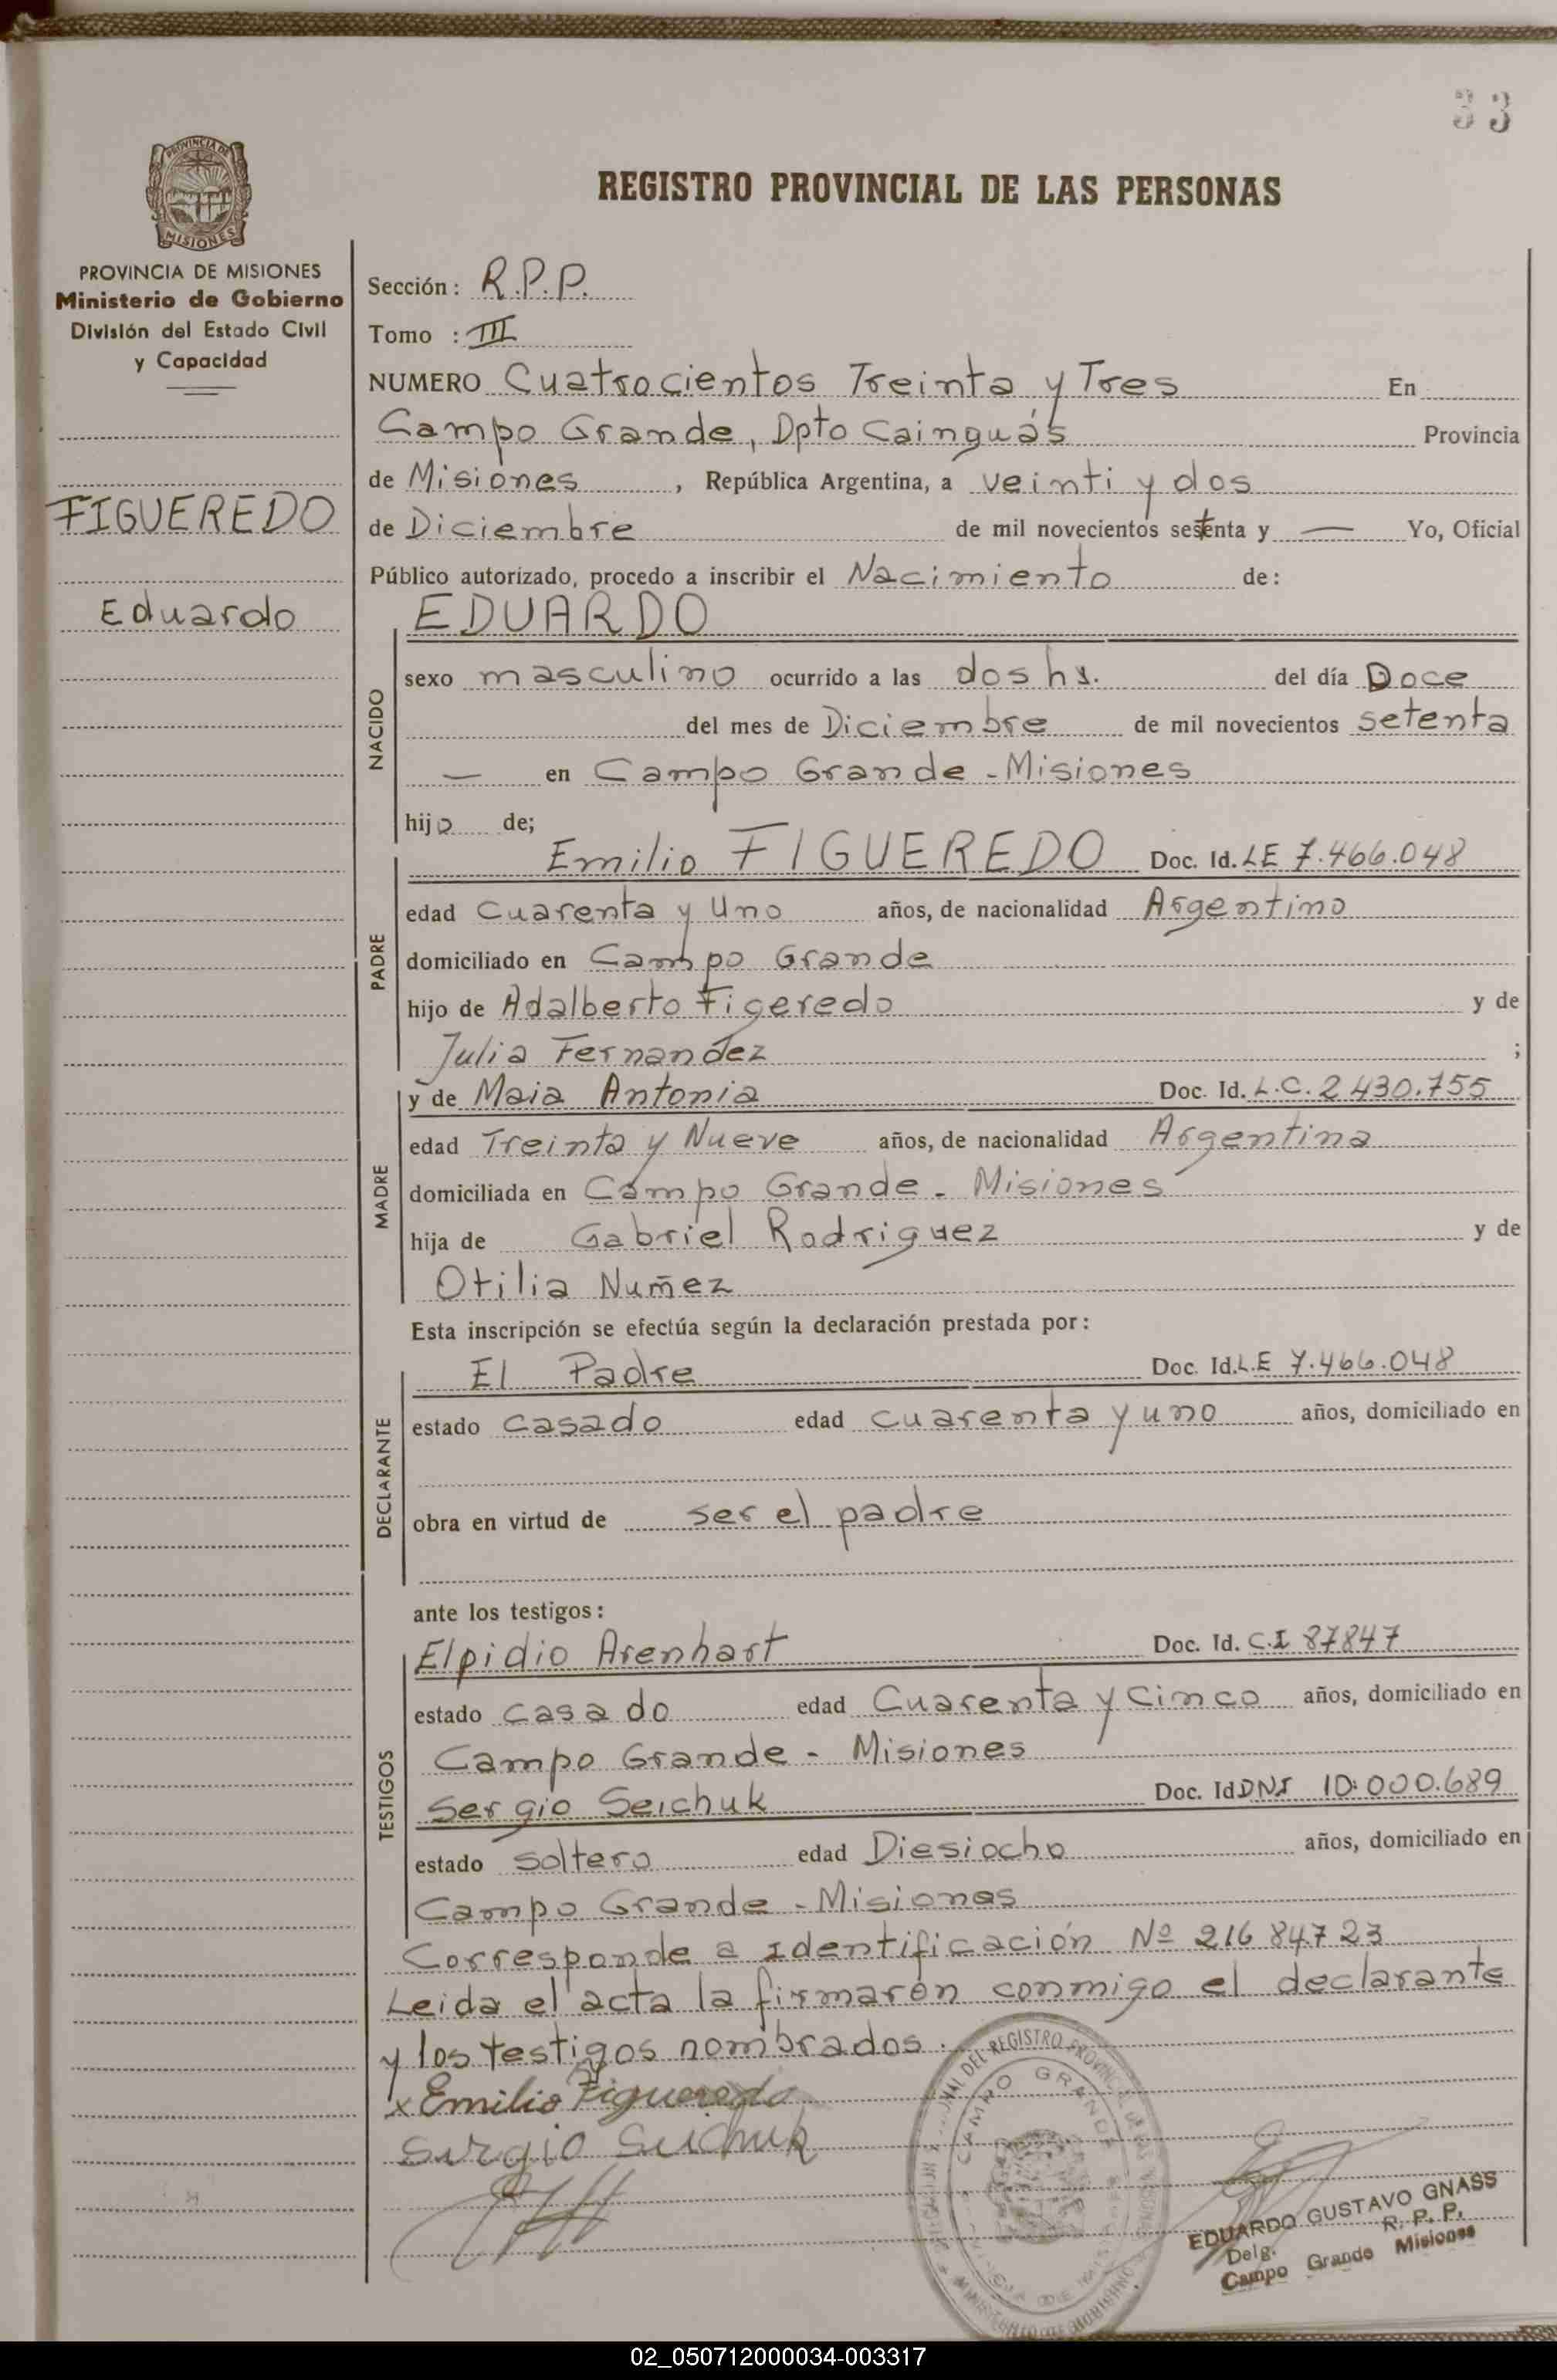 33
REGISTRO PROVINCIAL DE LAS PERSONAS
PROVINCIA DE MISIONES
PROVINCIA DE MISIONES
Ministerio de Gobierno
División del Estado Civil
y Capacidad
FIGUEREDO
Eduardo
Sección: R.P.P.
Tomo : III
NUMERO Cuatrocientos Treinta y Tres En
Campo Grande, Dpto Cainguás Provincia
de Misiones, República Argentina, a veinti y dos
de Diciembre de mil novecientos setenta y — Yo, Oficial
Público autorizado, procedo a inscribir el Nacimiento de:
NACIDO
EDUARDO
sexo masculino ocurrido a las dos hs. del día Doce
del mes de Diciembre de mil novecientos setenta
— en Campo Grande - Misiones
hijo de;
PADRE
Emilio FIGUEREDO Doc. Id. LE 7.466.048
edad Cuarenta y Uno años, de nacionalidad Argentino
domiciliado en Campo Grande
hijo de Adalberto Figeredo y de
Julia Fernandez ;
MADRE
y de Maia Antonia Doc. Id. L.C. 2430.755
edad Treinta y Nueve años, de nacionalidad Argentina
domiciliada en Campo Grande - Misiones
hija de Gabriel Rodriguez y de
Otilia Nuñez
Esta inscripción se efectúa según la declaración prestada por:
DECLARANTE
El Padre Doc. Id. L.E 7.466.048
estado casado edad cuarenta y uno años, domiciliado en
obra en virtud de ser el padre
ante los testigos:
TESTIGOS
Elpidio Arenhart Doc. Id. C.I 87847
estado casado edad Cuarenta y Cinco años, domiciliado en
Campo Grande - Misiones
Sergio Seichuk Doc. Id DNI 10.000.689
estado soltero edad Diesiocho años, domiciliado en
Campo Grande - Misiones
Corresponde a Identificación Nº 21684723
Leida el acta la firmarón conmigo el declarante
y los testigos nombrados.
x Emilio Figueredo
Sergio Seichuk
DEL REGISTRO PROVINCIAL DE LAS PERSONAS
CAMPO GRANDE
EDUARDO GUSTAVO GNASS
Delg. R. P. P.
Campo Grande Misiones
02_050712000034-003317